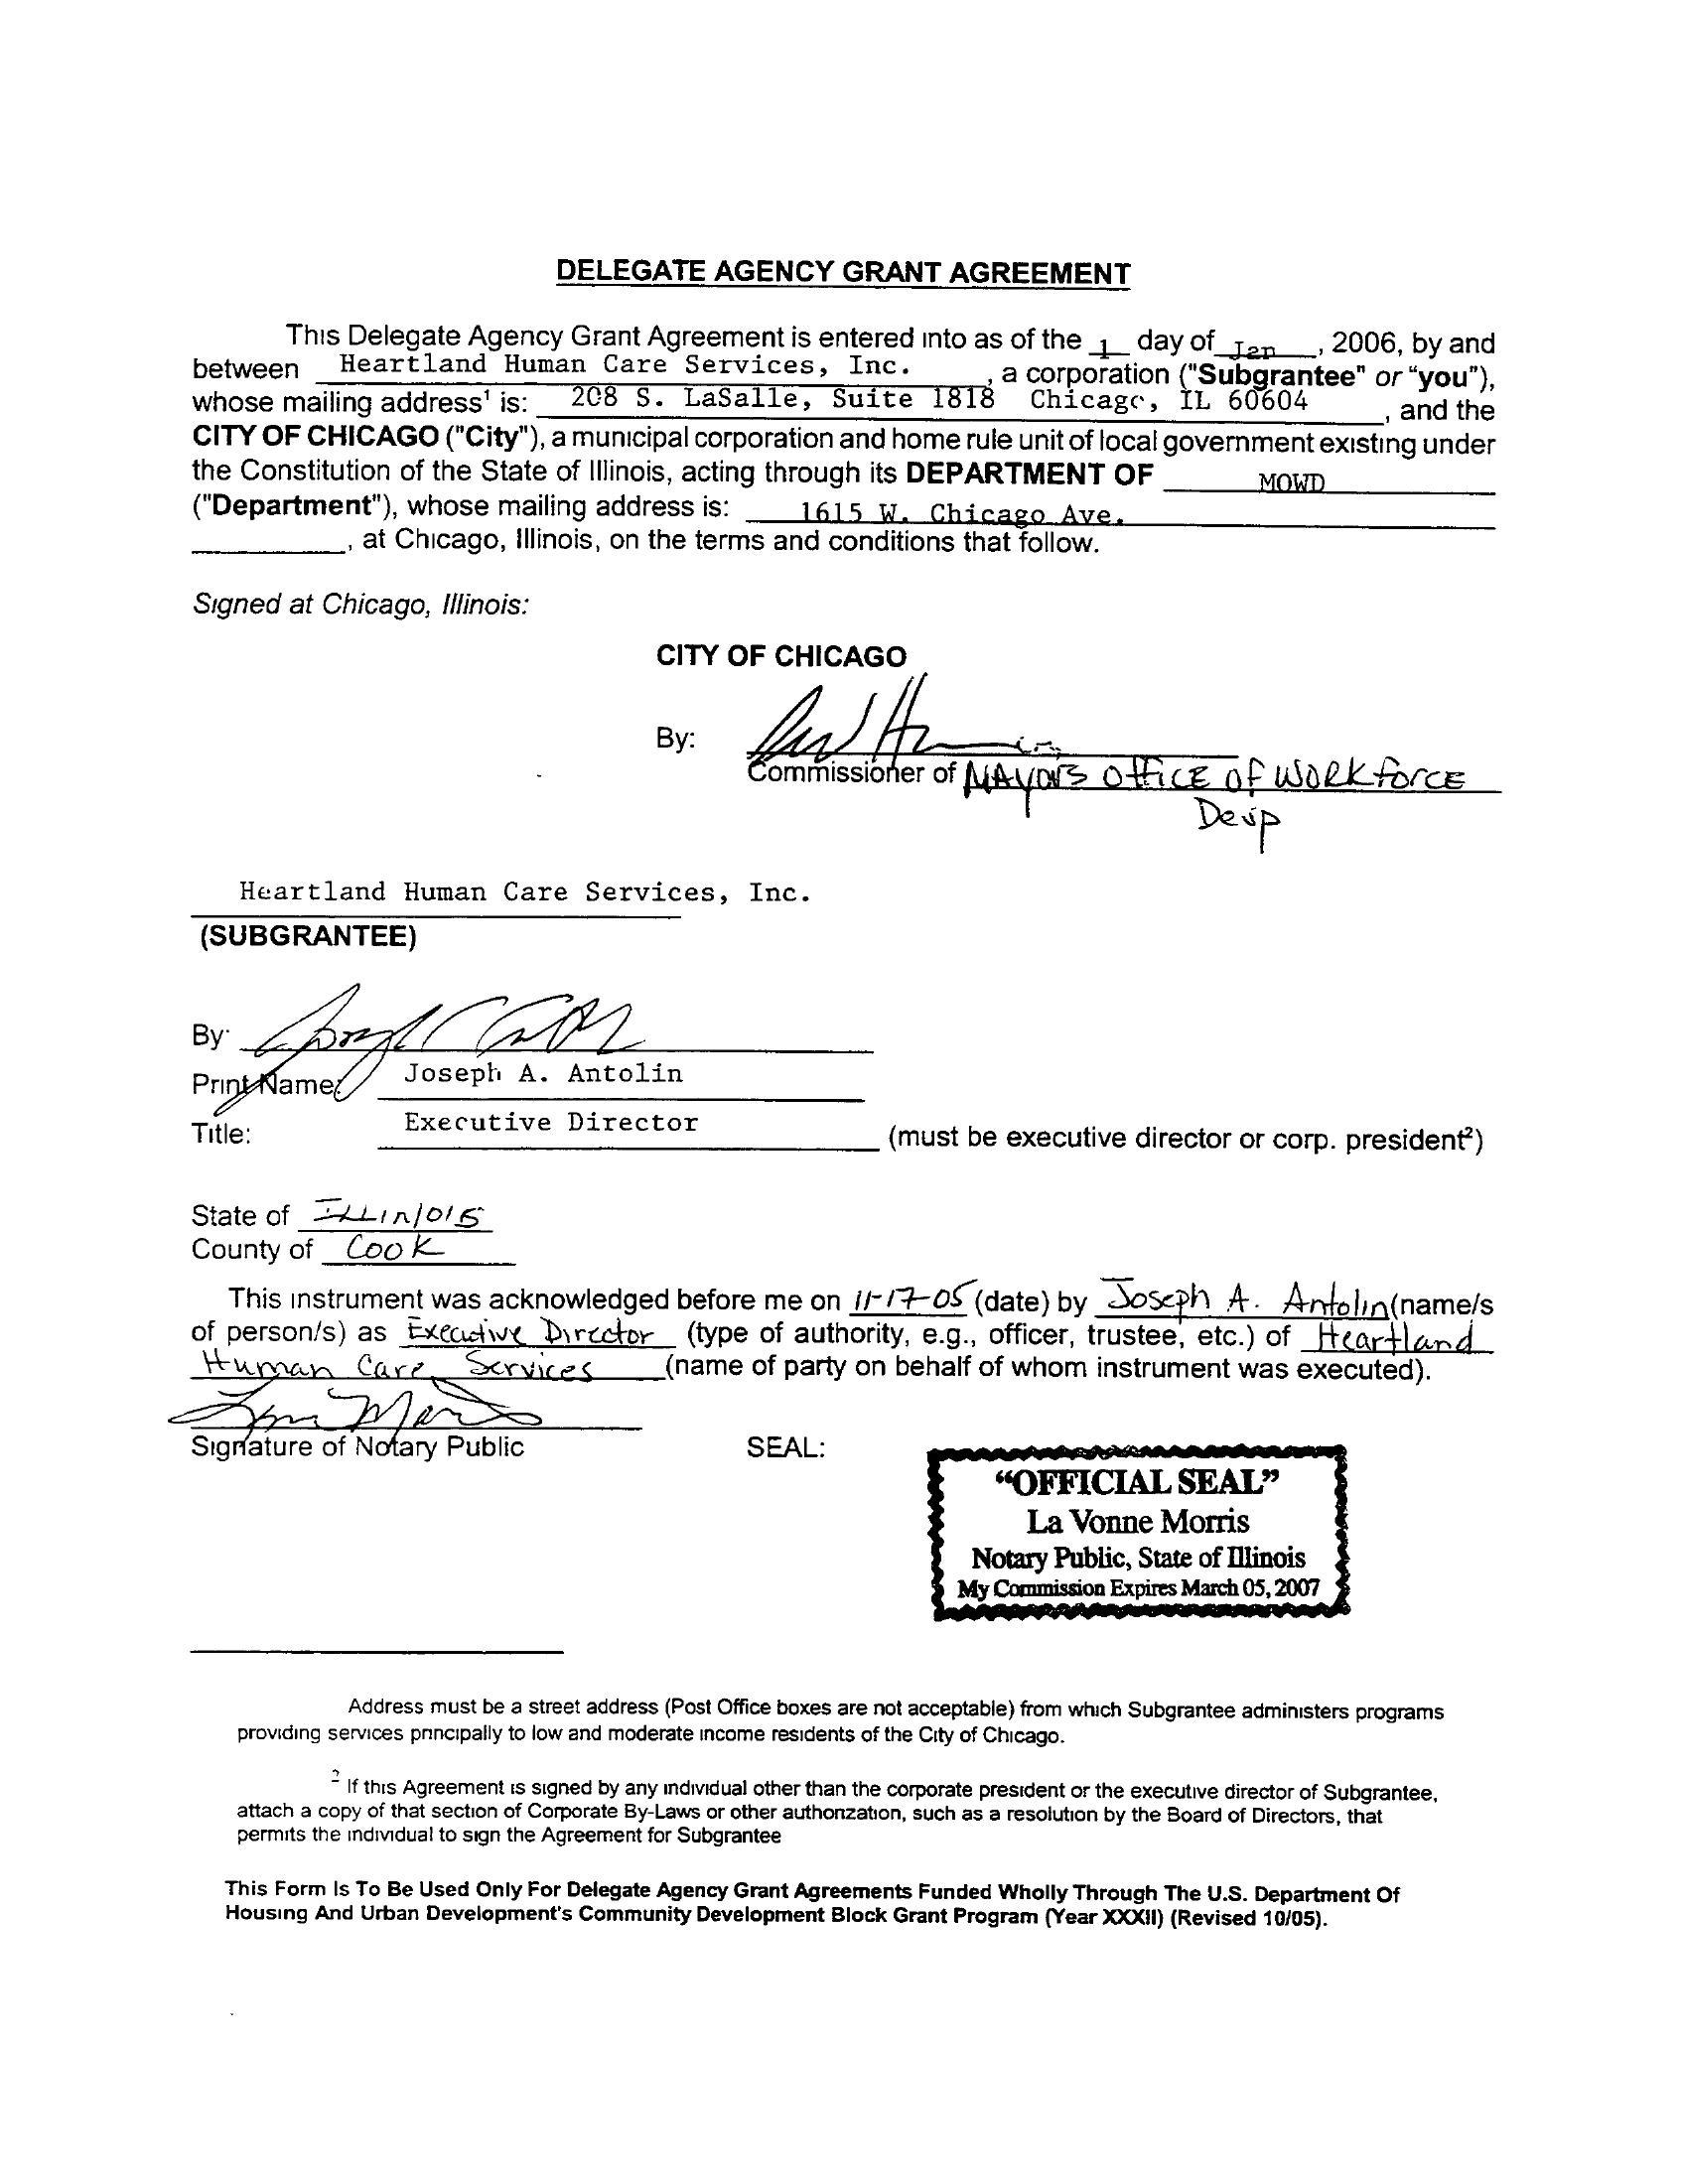 DELEGATE AGENCY GRANT AGREEMENT
This Delegate Agency Grant Agreement is entered into as of the 1 day of Jan, 2006, by and
between Heartland Human Care Services, Inc., a corporation ("Subgrantee" or "you"),
whose mailing address¹ is: 208 S. LaSalle, Suite 1818 Chicago, IL 60604, and the
CITY OF CHICAGO ("City"), a municipal corporation and home rule unit of local government existing under
the Constitution of the State of Illinois, acting through its DEPARTMENT OF MOWD
("Department"), whose mailing address is: 1615 W. Chicago Ave.
, at Chicago, Illinois, on the terms and conditions that follow.
Signed at Chicago, Illinois:
CITY OF CHICAGO
By:
Commissioner of MAYORS OFFICE OF WORKFORCE
Devp
Heartland Human Care Services, Inc.
(SUBGRANTEE)
By:
Print Name: Joseph A. Antolin
Title: Executive Director (must be executive director or corp. president²)
State of ILLINOIS
County of Cook
This instrument was acknowledged before me on 11-17-05 (date) by Joseph A. Antolin (name/s
of person/s) as Executive Director (type of authority, e.g., officer, trustee, etc.) of Heartland
Human Care Services (name of party on behalf of whom instrument was executed).
Signature of Notary Public SEAL:
"OFFICIAL SEAL"
La Vonne Morris
Notary Public, State of Illinois
My Commission Expires March 05, 2007
Address must be a street address (Post Office boxes are not acceptable) from which Subgrantee administers programs
providing services principally to low and moderate income residents of the City of Chicago.
² If this Agreement is signed by any individual other than the corporate president or the executive director of Subgrantee,
attach a copy of that section of Corporate By-Laws or other authorization, such as a resolution by the Board of Directors, that
permits the individual to sign the Agreement for Subgrantee
This Form Is To Be Used Only For Delegate Agency Grant Agreements Funded Wholly Through The U.S. Department Of
Housing And Urban Development's Community Development Block Grant Program (Year XXXII) (Revised 10/05).